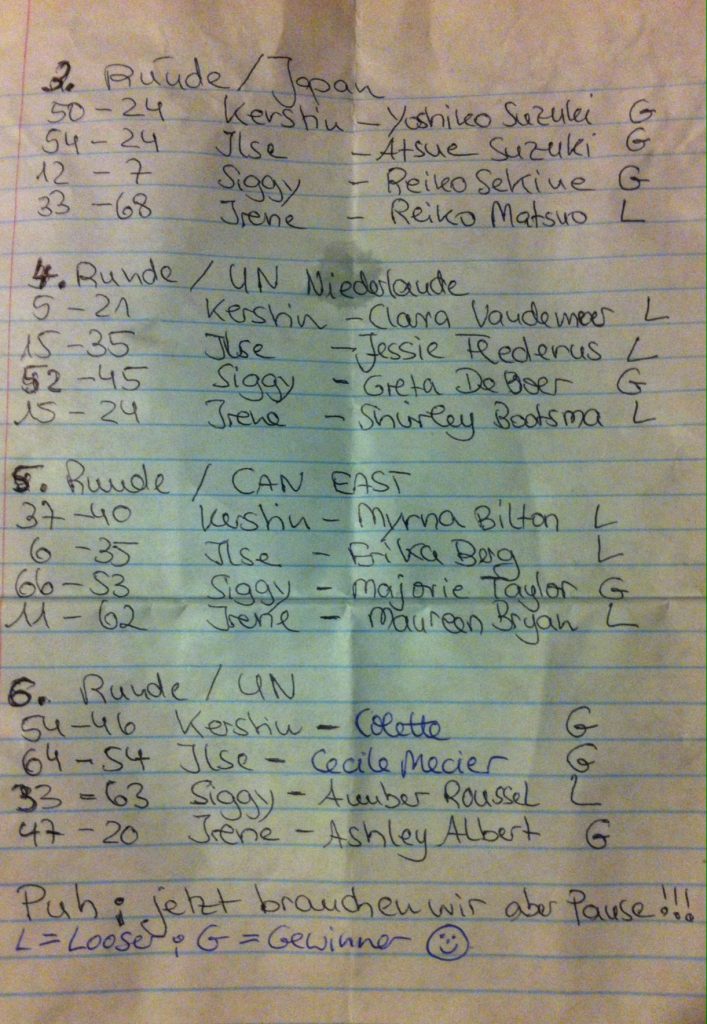 2. Runde / Japan
50 - 24 Kerstin - Yoshiko Suzuki G
54 - 24 Ilse - Atsue Suzuki G
12 - 7 Siggy - Reiko Sekine G
33 - 68 Irene - Reiko Matsuo L
4. Runde / UN Niederlande
5 - 21 Kerstin - Clara Vandemeer L
15 - 35 Ilse - Jessie Flederus L
52 - 45 Siggy - Greta De Boer G
15 - 24 Irene - Shirley Bootsma L
5. Runde / CAN EAST
37 - 40 Kerstin - Myrna Bilton L
6 - 35 Ilse - Erika Berg L
66 - 53 Siggy - Majorie Taylor G
11 - 62 Irene - Maureen Bryan L
6. Runde / UN
54 - 46 Kerstin - Colette G
64 - 54 Ilse - Cecile Mecier G
33 = 63 Siggy - Amber Roussel L
47 - 20 Irene - Ashley Albert G
Puh ; jetzt brauchen wir aber Pause!!!
L = Looser ; G = Gewinner ☺